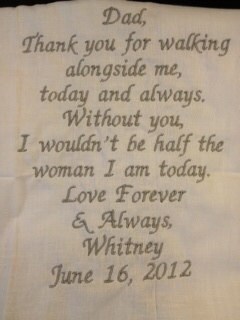 Dad,
Thank you for walking
alongside me,
today and always.
Without you,
I wouldn't be half the
woman I am today.
Love Forever
& Always,
Whitney
June 16, 2012